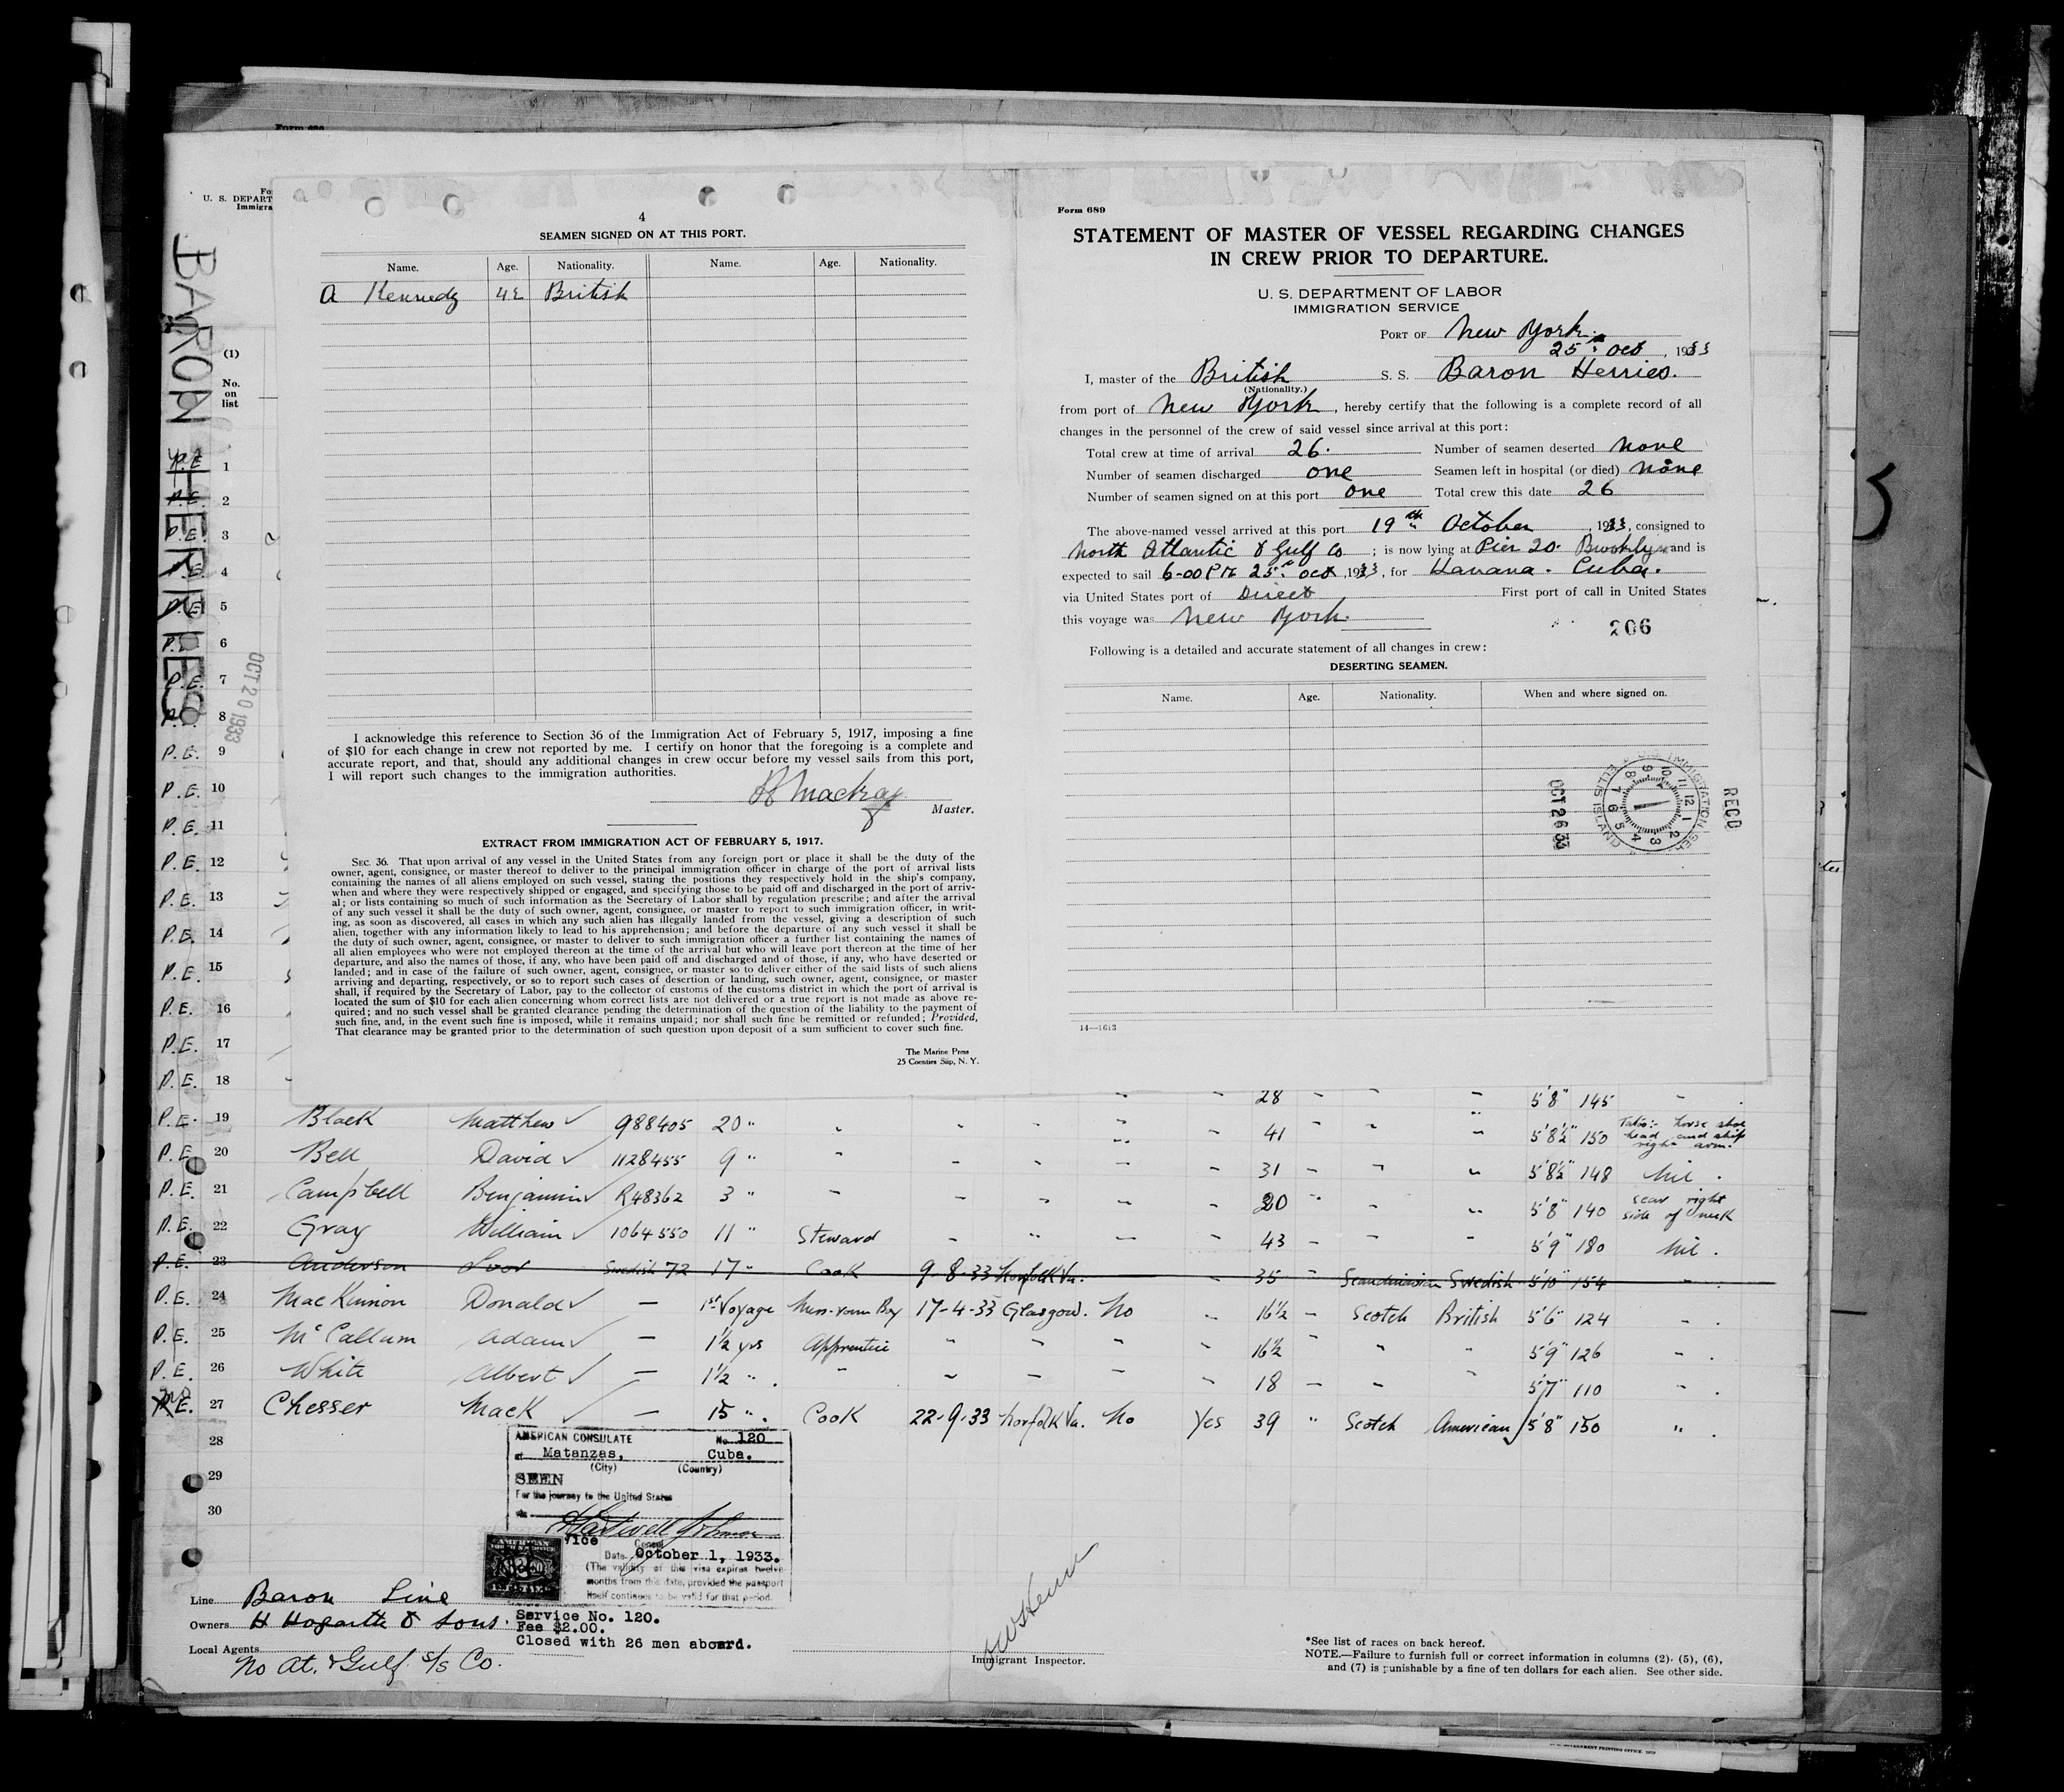 Form 689
U. S. DEPART
Immigra
BARON HERRIES
(1)
No.
on
list
OCT 20 1933
4
SEAMEN SIGNED ON AT THIS PORT.
Name. Age. Nationality. Name. Age. Nationality.
A Kennedy 42 British
I acknowledge this reference to Section 36 of the Immigration Act of February 5, 1917, imposing a fine
of $10 for each change in crew not reported by me. I certify on honor that the foregoing is a complete and
accurate report, and that, should any additional changes in crew occur before my vessel sails from this port,
I will report such changes to the immigration authorities.
Mackay
Master.
EXTRACT FROM IMMIGRATION ACT OF FEBRUARY 5, 1917.
SEC. 36. That upon arrival of any vessel in the United States from any foreign port or place it shall be the duty of the
owner, agent, consignee, or master thereof to deliver to the principal immigration officer in charge of the port of arrival lists
containing the names of all aliens employed on such vessel, stating the positions they respectively hold in the ship's company,
when and where they were respectively shipped or engaged, and specifying those to be paid off and discharged in the port of arriv-
al; or lists containing so much of such information as the Secretary of Labor shall by regulation prescribe; and after the arrival
of any such vessel it shall be the duty of such owner, agent, consignee, or master to report to such immigration officer, in writ-
ing, as soon as discovered, all cases in which any such alien has illegally landed from the vessel, giving a description of such
alien, together with any information likely to lead to his apprehension; and before the departure of any such vessel it shall be
the duty of such owner, agent, consignee, or master to deliver to such immigration officer a further list containing the names of
all alien employees who were not employed thereon at the time of the arrival but who will leave port thereon at the time of her
departure, and also the names of those, if any, who have been paid off and discharged and of those, if any, who have deserted or
landed; and in case of the failure of such owner, agent, consignee, or master so to deliver either of the said lists of such aliens
arriving and departing, respectively, or so to report such cases of desertion or landing, such owner, agent, consignee, or master
shall, if required by the Secretary of Labor, pay to the collector of customs of the customs district in which the port of arrival is
located the sum of $10 for each alien concerning whom correct lists are not delivered or a true report is not made as above re-
quired; and no such vessel shall be granted clearance pending the determination of the question of the liability to the payment of
such fine, and, in the event such fine is imposed, while it remains unpaid; nor shall such fine be remitted or refunded; Provided,
That clearance may be granted prior to the determination of such question upon deposit of a sum sufficient to cover such fine.
The Marine Press
25 Coenties Slip, N. Y.
Form 689
STATEMENT OF MASTER OF VESSEL REGARDING CHANGES
IN CREW PRIOR TO DEPARTURE.
U. S. DEPARTMENT OF LABOR
IMMIGRATION SERVICE
PORT OF New York
25th Oct, 1933
I, master of the British S. S. Baron Herries.
(Nationality.)
from port of New York, hereby certify that the following is a complete record of all
changes in the personnel of the crew of said vessel since arrival at this port:
Total crew at time of arrival 26. Number of seamen deserted none
Number of seamen discharged one Seamen left in hospital (or died) none
Number of seamen signed on at this port one Total crew this date 26
The above-named vessel arrived at this port 19th October, 1933, consigned to
North Atlantic & Gulf Co; is now lying at Pier 20. Brooklyn and is
expected to sail 6-00 PM 25th Oct, 1933, for Havana. Cuba.
via United States port of Direct First port of call in United States
this voyage was New York.
206
Following is a detailed and accurate statement of all changes in crew:
DESERTING SEAMEN.
Name. Age. Nationality. When and where signed on.
OCT 26 33
U.S. IMMIGRATION SERVICE ELLIS ISLAND
RECD
14—1613
P.E. 1
P.E. 2
P.E. 3
P.E. 4
P.E. 5
P.E. 6
P.E. 7
P.E. 8
P.E. 9
P.E. 10
P.E. 11
P.E. 12
P.E. 13
P.E. 14
P.E. 15
P.E. 16
P.E. 17
P.E. 18 28 5'8" 145
P.E. 19 Black Matthew 988405 20 " 41 5'8½" 150 Tatoo:- horse shoe head and ship right arm.
P.E. 20 Bell David 1128455 9 " 31 5'8½" 148 Nil.
P.E. 21 Campbell Benjamin R48362 3 " 20 5'8" 140 scar right side of neck
P.E. 22 Gray William 1064550 11 " Steward 43 5'9" 180 Nil.
P.E. 23 Anderson Ivor Swedish 72 17 " Cook 9-8-33 Norfolk Va. 35 " Scandinavian Swedish 5'10" 154
P.E. 24 MacKinnon Donald — 1st Voyage Mess-room Boy 17-4-33 Glasgow. No 16½ Scotch British 5'6" 124
P.E. 25 McCallum Adam — 1½ yrs Apprentice 16½ 5'9" 126
P.E. 26 White Albert — 1½ " 18 5'7" 110
P.E. 27 Chesser Mack — 15 " Cook 22-9-33 Norfolk Va. No Yes 39 " Scotch American 5'8" 150 "
28
29
30
AMERICAN CONSULATE No. 120
at Matanzas, Cuba.
(City) (Country)
SEEN
For the journey to the United States
via
Hartwell Johnson
Vice Consul
Date October 1, 1933.
(The validity of this visa expires twelve
months from this date, provided the passport
itself continues to be valid for that period.
Service No. 120.
Fee $2.00.
Closed with 26 men aboard.
Line Baron Line
Owners H Hogarth & Sons.
Local Agents No At. & Gulf S/S Co.
Immigrant Inspector.
*See list of races on back hereof.
NOTE.—Failure to furnish full or correct information in columns (2), (5), (6),
and (7) is punishable by a fine of ten dollars for each alien. See other side.